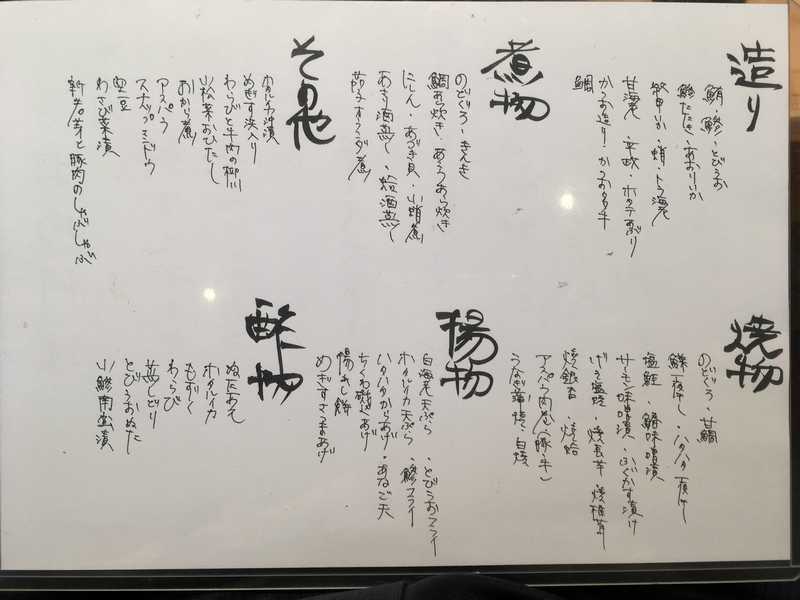 造り
鮪 鰺・とびうお
鰺たたき・あおりいか
紋甲いか・蛸・トラ海老
甘海老・平政・ホタテあぶり
かつお造り・かつおタタキ
鯛
煮物
のどぐろ・きんき
鯛あら炊き・あこうあら炊き
にしん・あづき貝・小蛸煮
あさり酒蒸し・蛤酒蒸し
茄子オランダ煮
その他
ホタルイカ沖漬
めぎす浜入り
わらびと牛肉の柳川
山菜おひたし
おから煮
アスパラ
スナップエンドウ
空豆
わさび菜漬
新玉芽と豚肉のしゃぶしゃぶ
焼物
のどぐろ・甘鯛
鰈一夜干し・ハタハタ一夜干し
塩鮭 鯖味噌漬
サーモン味噌漬・ふぐかす漬け
げそ塩焼・焼長芋・焼椎茸
焼銀杏 焼蛤
アスパラ肉巻(豚・牛)
うなぎ蒲焼・白焼
揚物
白海老天ぷら・とびうおフライ
ホタルイカ天ぷら・鰺フライ
ハタハタからあげ・あなご天
ちくわ磯辺あげ
揚出し餅
めぎすさつまあげ
酢物
ぬたあえ
ホタルイカ
もずく
わらび
蒸しどり
とびうおぬた
小鰺南蛮漬